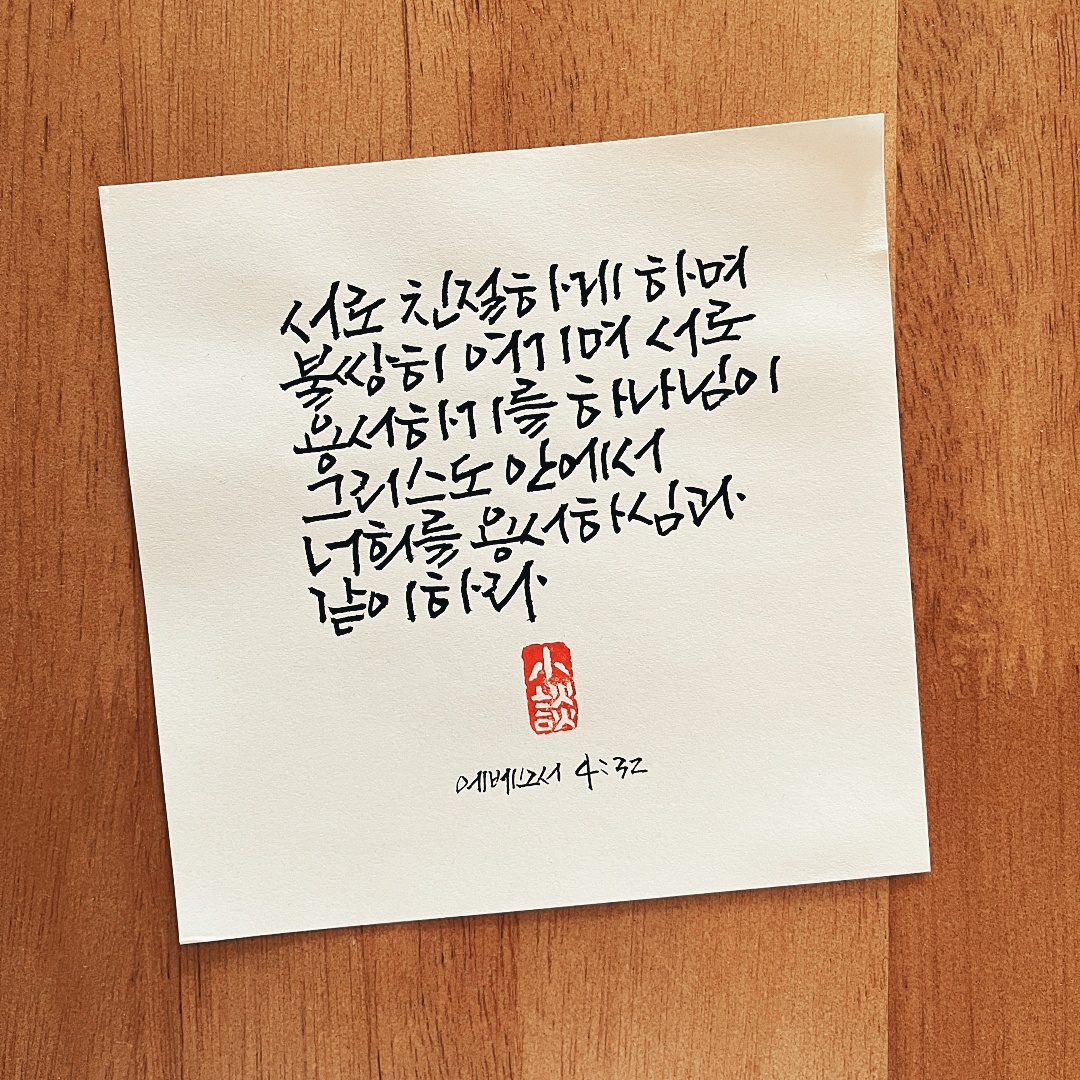 서로 친절하게 하며
불쌍히 여기며 서로
용서하기를 하나님이
그리스도 안에서
너희를 용서하심과
같이하라
小談
에베소서 4:32